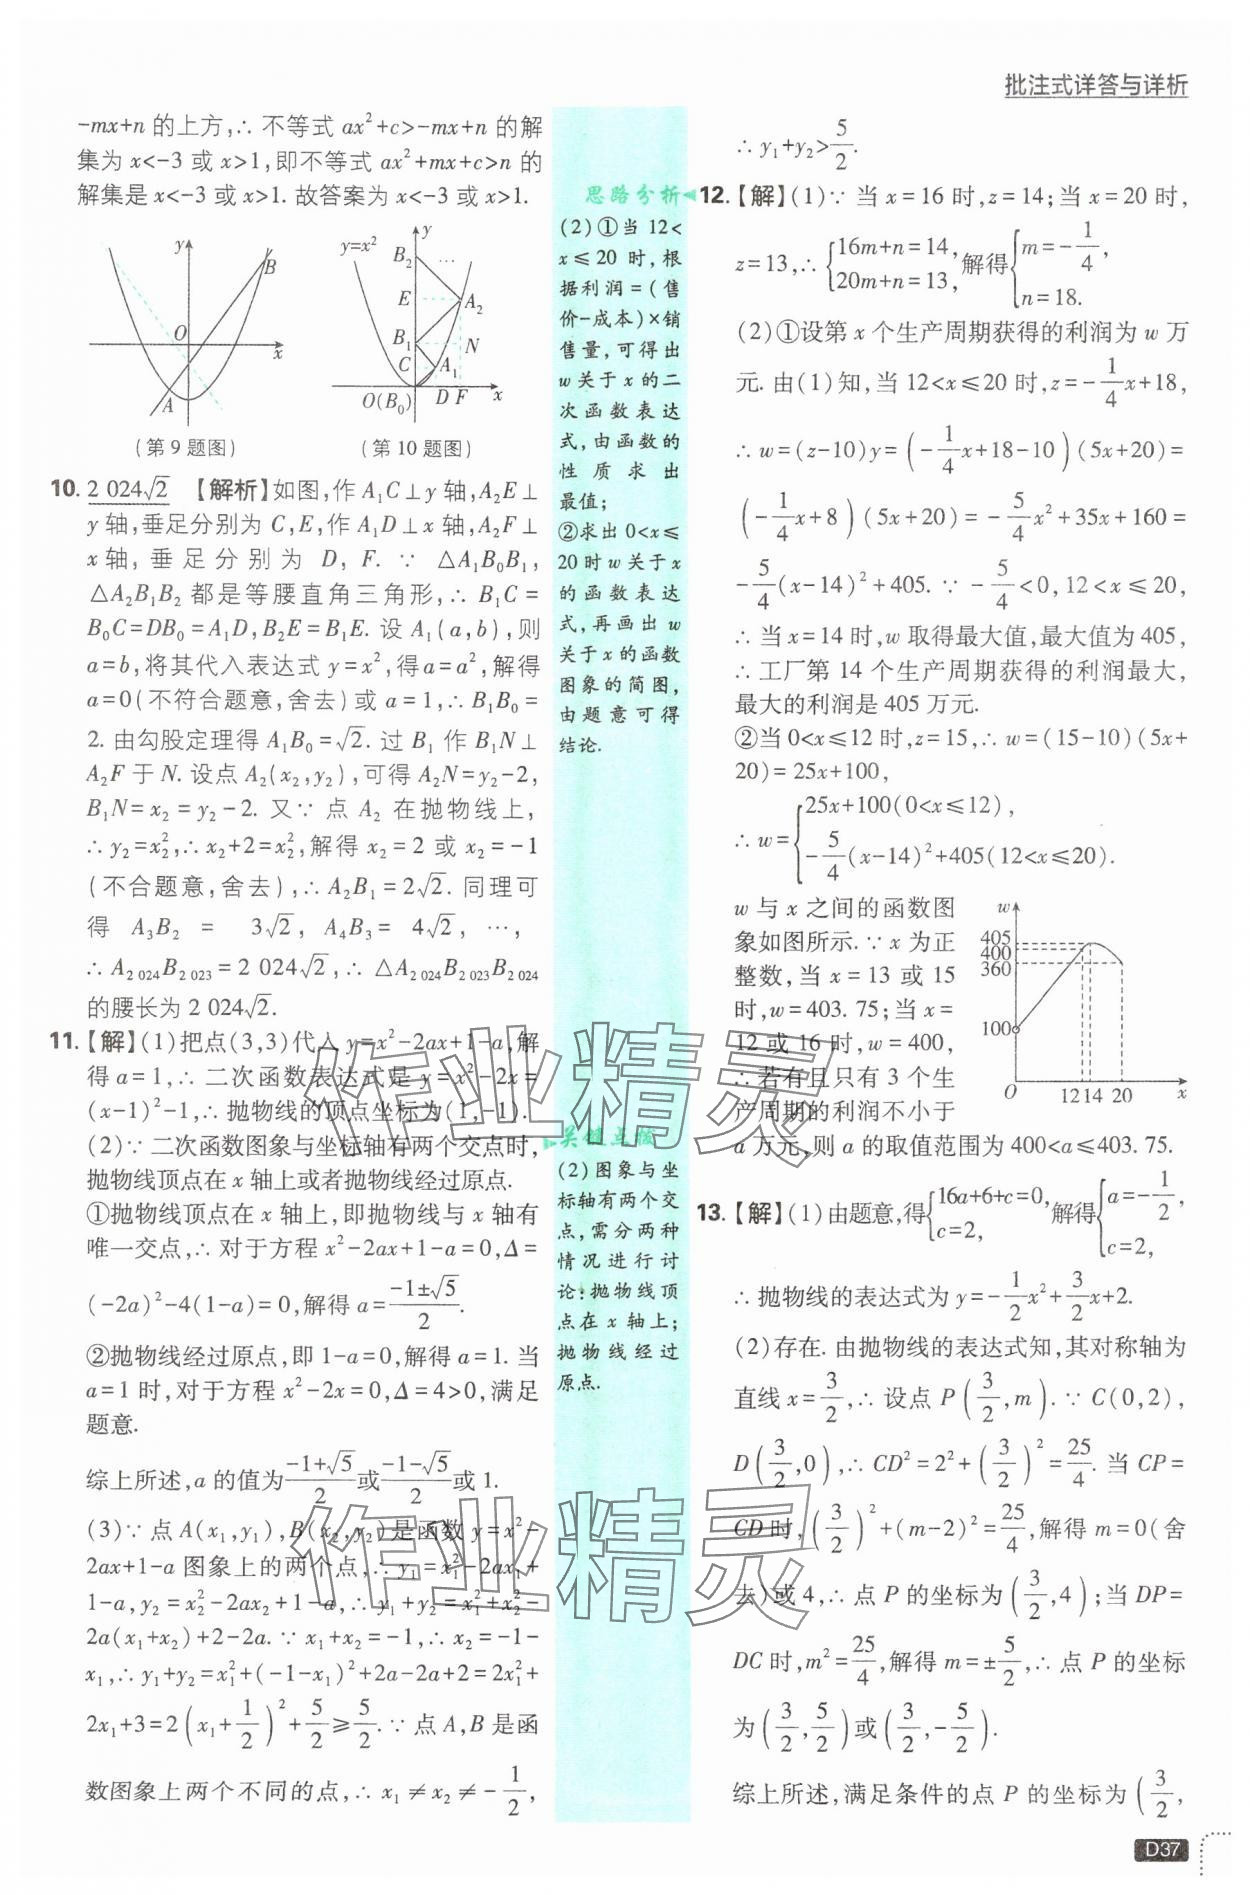 批注式详答与详析
-mx+n 的上方,∴ 不等式 ax²+c>-mx+n 的解
集为 x<-3 或 x>1,即不等式 ax²+mx+c>n 的
解集是 x<-3 或 x>1. 故答案为 x<-3 或 x>1.
y
B
O
x
A
(第 9 题图)
y=x²
y
B₂
…
E
A₂
B₁
N
C
A₁
O(B₀)
D F
x
(第 10 题图)
10. 2 024√2 【解析】如图,作 A₁C⊥y 轴,A₂E⊥
y 轴,垂足分别为 C,E,作 A₁D⊥x 轴,A₂F⊥
x 轴, 垂 足 分 别 为 D, F. ∵ △A₁B₀B₁,
△A₂B₁B₂ 都是等腰直角三角形,∴ B₁C=
B₀C=DB₀=A₁D,B₂E=B₁E. 设 A₁(a,b),则
a=b,将其代入表达式 y=x²,得 a=a²,解得
a=0(不符合题意,舍去)或 a=1,∴ B₁B₀=
2. 由勾股定理得 A₁B₀=√2. 过 B₁ 作 B₁N⊥
A₂F 于 N. 设点 A₂(x₂,y₂),可得 A₂N=y₂-2,
B₁N=x₂=y₂-2. 又∵ 点 A₂ 在抛物线上,
∴ y₂=x₂²,∴ x₂+2=x₂²,解得 x₂=2 或 x₂=-1
(不合题意,舍去),∴ A₂B₁=2√2. 同理可
得 A₃B₂ = 3√2, A₄B₃ = 4√2, …,
∴ A₂₀₂₄B₂₀₂₃=2 024√2,∴ △A₂₀₂₄B₂₀₂₃B₂₀₂₄
的腰长为 2 024√2.
11. 【解】(1)把点(3,3)代入 y=x²-2ax+1-a,解
得 a=1,∴ 二次函数表达式是 y=x²-2x=
(x-1)²-1,∴ 抛物线的顶点坐标为(1,-1).
(2)∵ 二次函数图象与坐标轴有两个交点时,
抛物线顶点在 x 轴上或者抛物线经过原点.
①抛物线顶点在 x 轴上,即抛物线与 x 轴有
唯一交点,∴ 对于方程 x²-2ax+1-a=0,Δ=
(-2a)²-4(1-a)=0,解得 a=(-1±√5)/2.
②抛物线经过原点,即 1-a=0,解得 a=1. 当
a=1 时,对于方程 x²-2x=0,Δ=4>0,满足
题意.
综上所述,a 的值为(-1+√5)/2或(-1-√5)/2或 1.
(3)∵ 点 A(x₁,y₁),B(x₂,y₂)是函数 y=x²-
2ax+1-a 图象上的两个点,∴ y₁=x₁²-2ax₁+
1-a,y₂=x₂²-2ax₂+1-a,∴ y₁+y₂=x₁²+x₂²-
2a(x₁+x₂)+2-2a. ∵ x₁+x₂=-1,∴ x₂=-1-
x₁,∴ y₁+y₂=x₁²+(-1-x₁)²+2a-2a+2=2x₁²+
2x₁+3=2(x₁+1/2)²+5/2≥5/2. ∵ 点 A,B 是函
数图象上两个不同的点,∴ x₁≠x₂≠-1/2,
思路分析
(2)①当 12<
x≤20 时,根
据利润=(售
价-成本)×销
售量,可得出
w 关于 x 的二
次函数表达
式,由函数的
性质求出
最值;
②求出 0<x≤
20 时 w 关于 x
的函数表达
式,再画出 w
关于 x 的函数
图象的简图,
由题意可得
结论.
关键点拨
(2)图象与坐
标轴有两个交
点,需分两种
情况进行讨
论:抛物线顶
点在 x 轴上;
抛物线经过
原点.
∴ y₁+y₂>5/2.
12. 【解】(1)∵ 当 x=16 时,z=14;当 x=20 时,
z=13,∴ {16m+n=14, 20m+n=13, 解得{m=-1/4, n=18.
(2)①设第 x 个生产周期获得的利润为 w 万
元. 由(1)知,当 12<x≤20 时,z=-1/4x+18,
∴ w=(z-10)y=(-1/4x+18-10)(5x+20)=
(-1/4x+8)(5x+20)=-5/4x²+35x+160=
-5/4(x-14)²+405. ∵ -5/4<0,12<x≤20,
∴ 当 x=14 时,w 取得最大值,最大值为 405,
∴ 工厂第 14 个生产周期获得的利润最大,
最大的利润是 405 万元.
②当 0<x≤12 时,z=15,∴ w=(15-10)(5x+
20)=25x+100,
∴ w={25x+100(0<x≤12), -5/4(x-14)²+405(12<x≤20).
w 与 x 之间的函数图
象如图所示. ∵ x 为正
整数,当 x=13 或 15
时,w=403.75;当 x=
12 或 16 时,w=400,
∴ 若有且只有 3 个生
产周期的利润不小于
a 万元,则 a 的取值范围为 400<a≤403.75.
w
405
400
360
100
O
12 14 20
x
13. 【解】(1)由题意,得{16a+6+c=0, c=2, 解得{a=-1/2, c=2,
∴ 抛物线的表达式为 y=-1/2x²+3/2x+2.
(2)存在. 由抛物线的表达式知,其对称轴为
直线 x=3/2,∴ 设点 P(3/2,m). ∵ C(0,2),
D(3/2,0),∴ CD²=2²+(3/2)²=25/4. 当 CP=
CD 时,(3/2)²+(m-2)²=25/4,解得 m=0(舍
去)或 4,∴ 点 P 的坐标为(3/2,4);当 DP=
DC 时,m²=25/4,解得 m=±5/2,∴ 点 P 的坐标
为(3/2,5/2)或(3/2,-5/2).
综上所述,满足条件的点 P 的坐标为(3/2,
作业精灵
作业精灵
D37